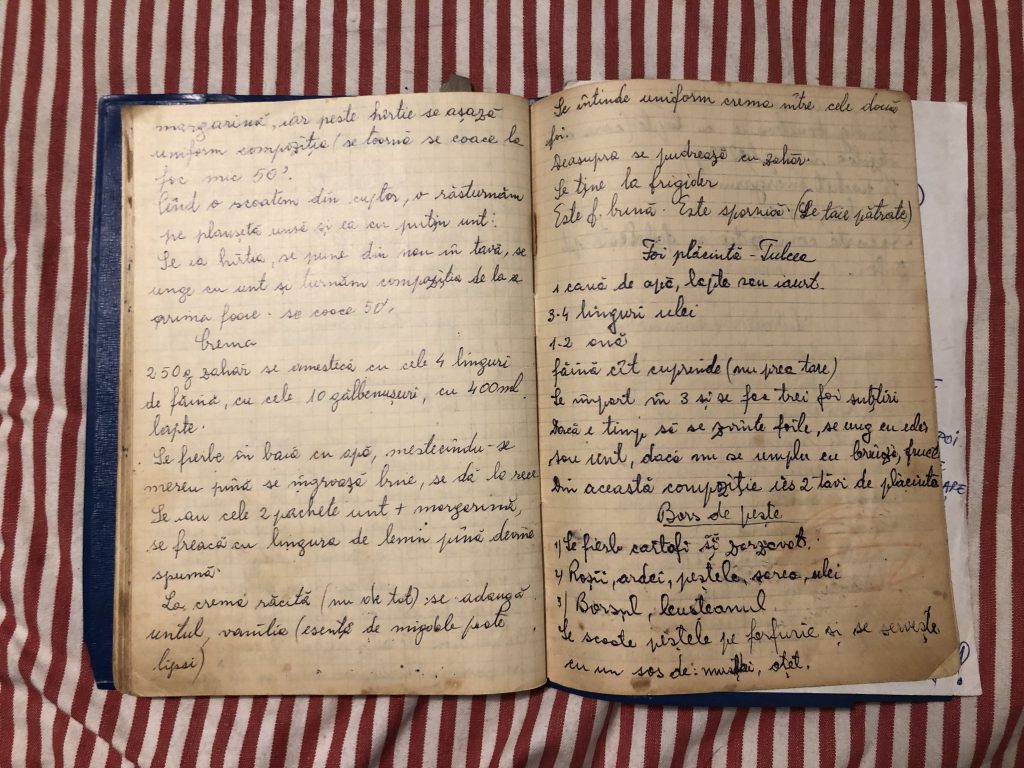 margarină, iar peste hîrtie se așază
uniform compoziția (se toarnă se coace la
foc mic 50'.
Cînd o scoatem din cuptor, o răsturnăm
pe planșetă unsă și ea cu puțin unt:
Se ia hîrtia, se pune din nou în tavă, se
unge cu unt și turnăm compoziția de la a
prima foaie. se coace 50',
Crema
250g zahar se amestică cu cele 4 linguri
de făină, cu cele 10 gălbenușuri, cu 400ml.
lapte.
Se fierbe în baia cu apă, mestecîndu-se
mereu pînă se îngroază bine, se dă la rece
Se iau cele 2 pachete unt + margarină,
se freacă cu lingura de lemn pînă devine
spumă.
La crema răcită (nu de tot) se adaugă
untul, vanilia (esență de migdale poate
lipsi)
Se întinde uniform crema între cele două
foi.
Deasupra se pudrează cu zahăr.
Se ține la frigider
Este f. bună. Este spornică. (Se taie pătrate)
Foi plăcintă - Tulcea
1 cană de apă, lapte sau iaurt.
3-4 linguri ulei
1-2 ouă
făină cît cuprinde (nu prea tare)
Se împart în 3 și se fac trei foi subțiri
Dacă e timp să se zvinte foile, se ung cu ulei
sau unt, dacă nu se umplu cu brînză, fructe
Din această compoziție ies 2 tăvi de plăcintă
FOI
APE
Borș de pește
1) Se fierb cartofi și zarzavat.
2) Roșii, ardei, peștele, sarea, ulei
3) Borșul, leușteanul
Se scoate peștele pe farfurie și se servește
cu un sos de: mujdei, oțet.